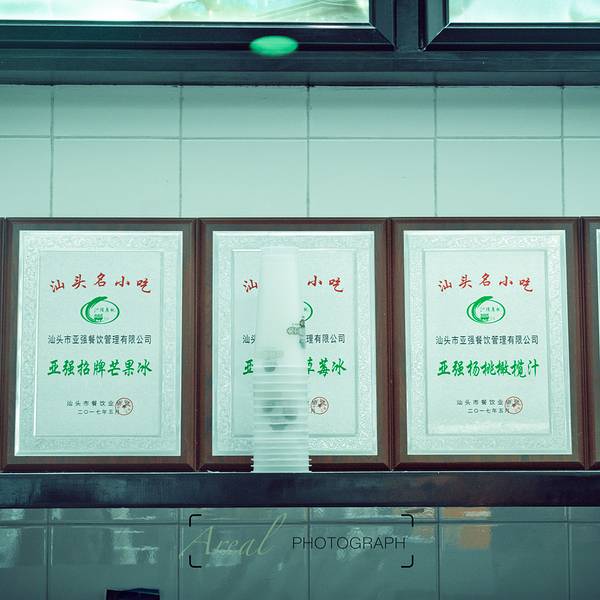 汕头名小吃
汕头市亚强餐饮管理有限公司
亚强招牌芒果冰
汕头市餐饮业协会
二〇一七年五月
汕头名小吃
汕头市亚强餐饮管理有限公司
草莓冰
汕头名小吃
汕头市亚强餐饮管理有限公司
亚强杨桃橄榄汁
汕头市餐饮业协会
二〇一七年五月
Areal PHOTOGRAPH